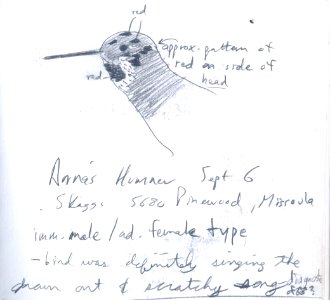 red
approx. pattern of
red on side of
head
red
Anna's Hummer Sept 6
Skaggs 5680 Pinewood, Missoula
imm. male / ad. female type
- bird was definitely singing the
drawn out & scratchy song